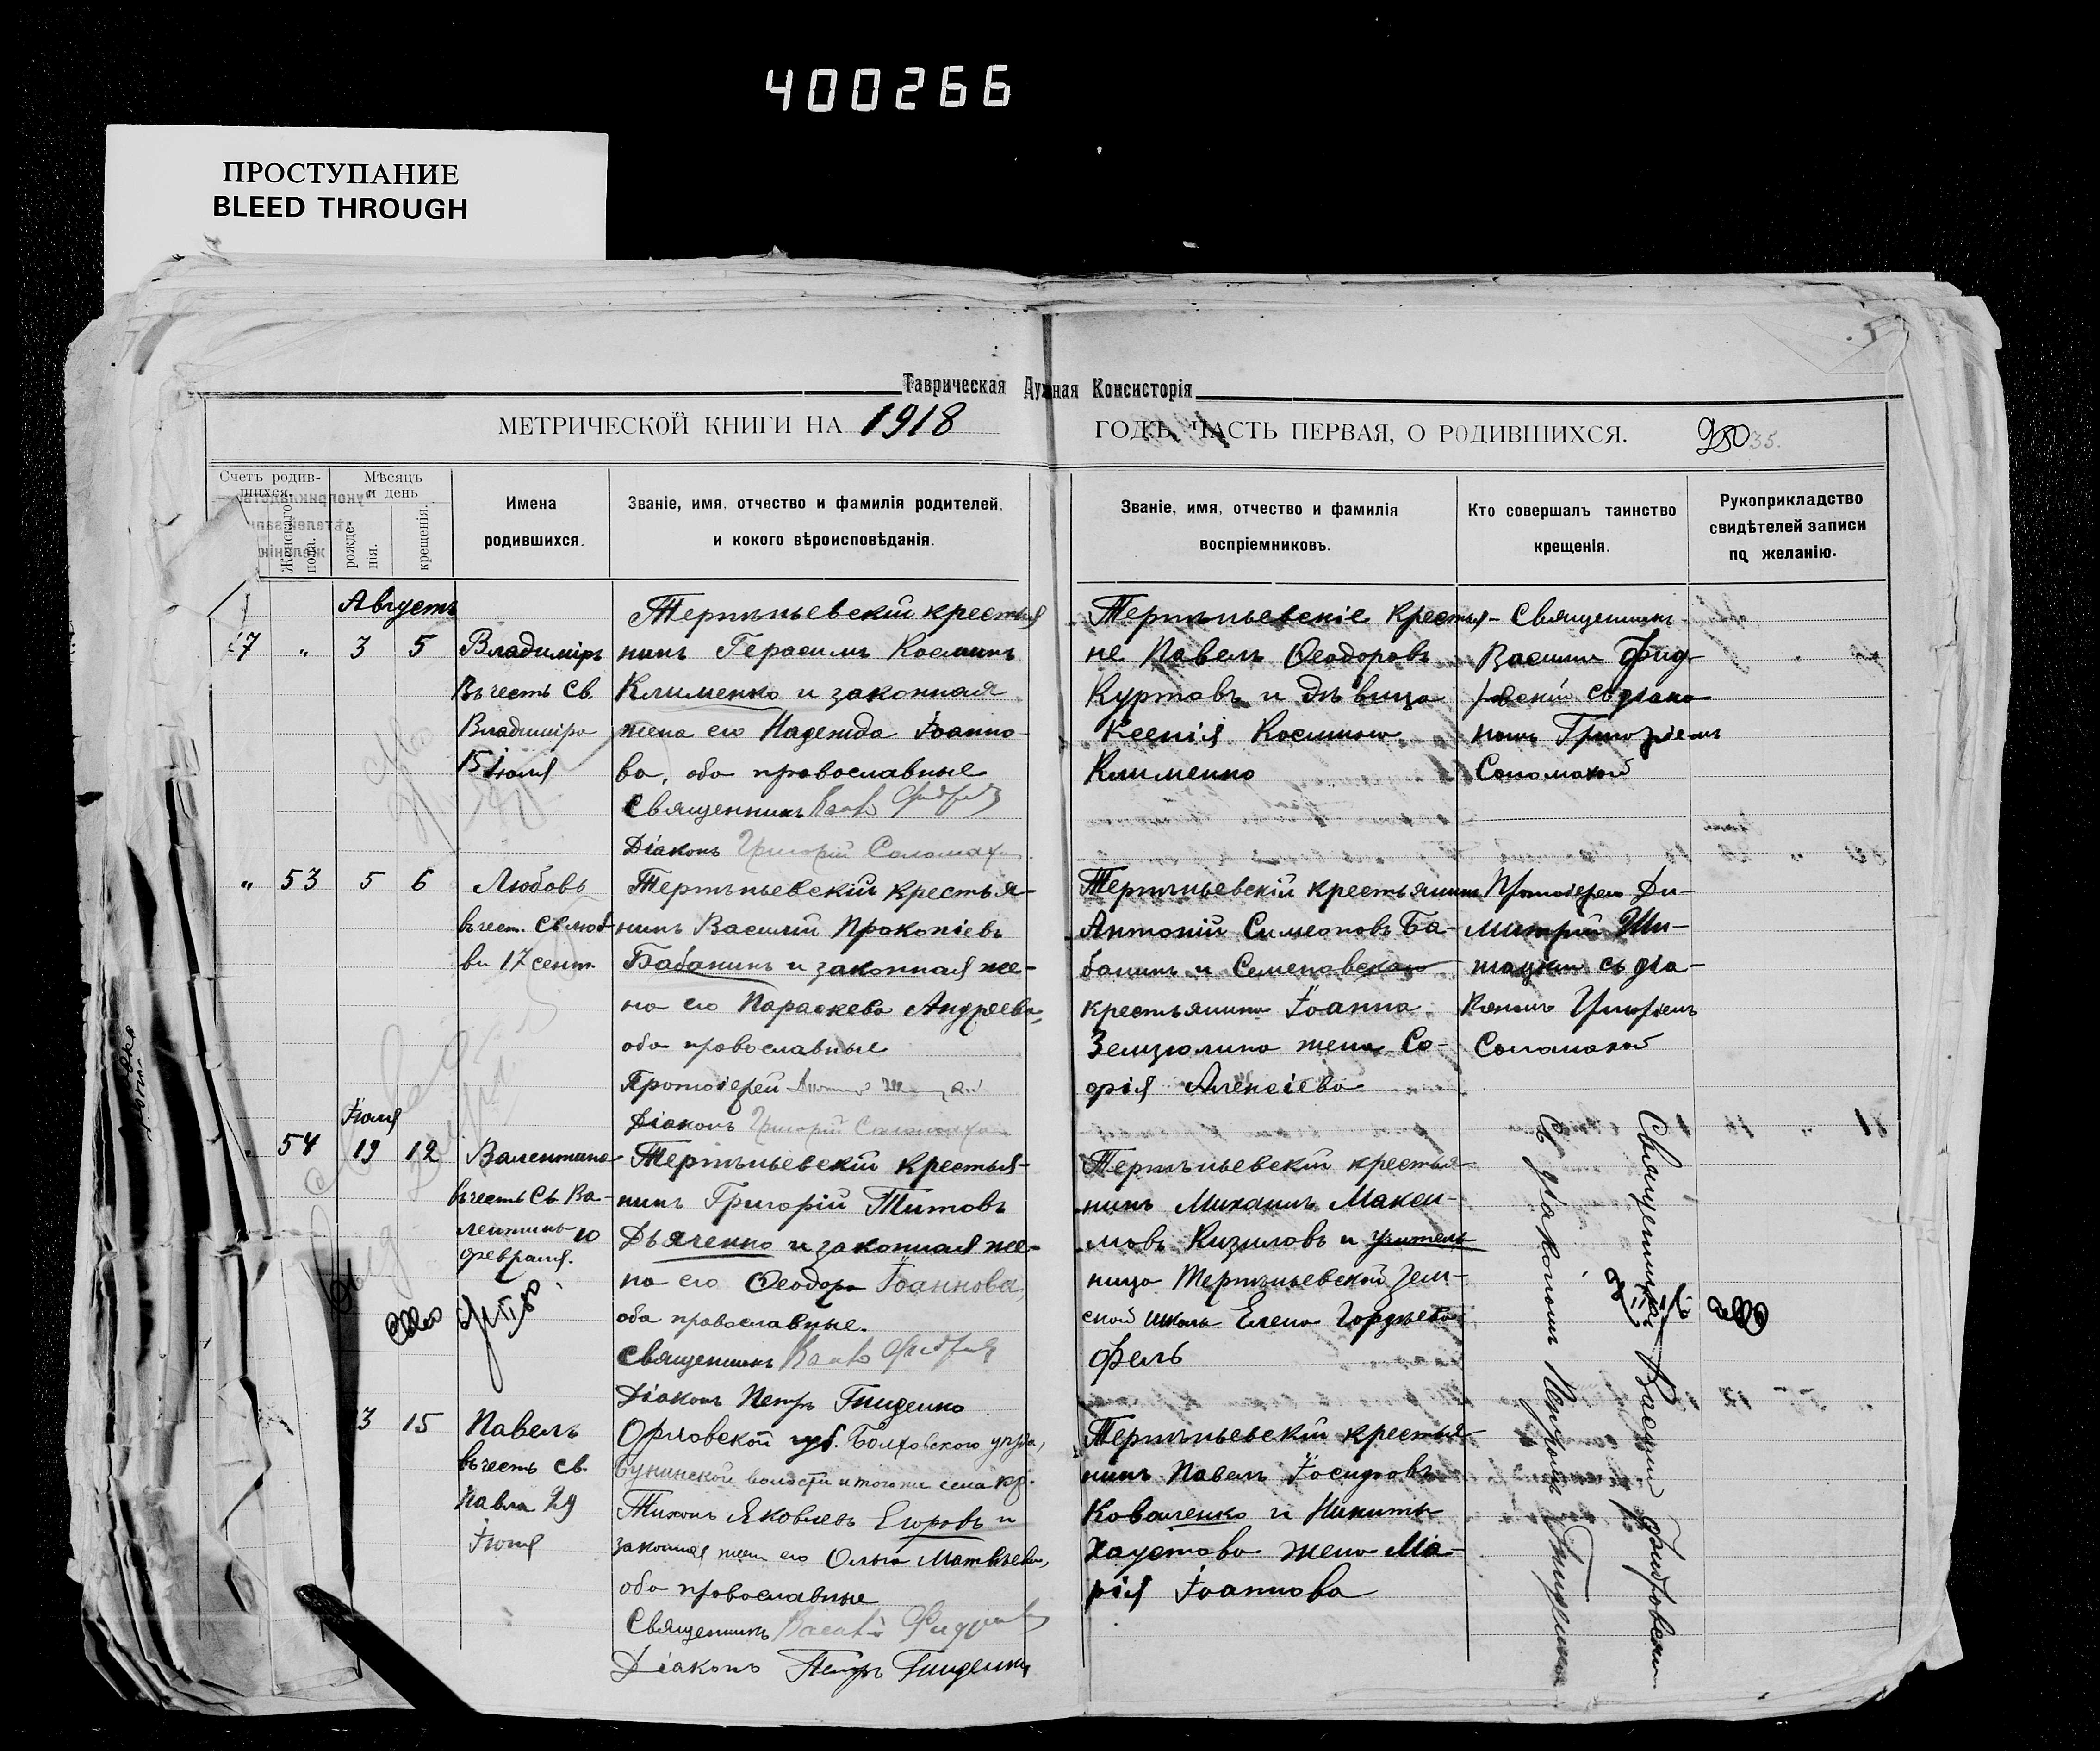 400266
ПРОСТУПАНИЕ
BLEED THROUGH
Таврическая Духная Консисторія
МЕТРИЧЕСКОЙ КНИГИ НА 1918 ГОДЪ, ЧАСТЬ ПЕРВАЯ, О РОДИВШИХСЯ. 250 35.
Счетъ родив-
шихся.
Женскаго
пола.
Мѣсяцъ
и день
рожде-
нія.
крещенія.
Имена
родившихся.
Званіе, имя, отчество и фамилія родителей,
и кокого вѣроисповѣданія.
Званіе, имя, отчество и фамилія
воспріемниковъ.
Кто совершалъ таинство
крещенія.
Рукоприкладство
свидѣтелей записи
по желанію.
Августъ
7 " 3 5
Владиміръ
въ честь св.
Владиміра
15 іюля
Терпѣньевскій крестья
нинъ Герасимъ Косминъ
Клименко и законная
жена его Надежда Іоанно-
ва, оба православные
Священникъ
Діаконъ Григорій Соломаха
Терпѣньевскіе крестья-
не Павелъ Ѳеодоровъ
Куртовъ и дѣвица
Ксенія Космина
Клименко
Священникъ
Василій Фид-
ровскій съ діако
номъ Григоріемъ
Соломахой
" 53 5 6
Любовь
въ чест. св. Люб-
ви 17 сент.
Терпѣньевскій крестья-
нинъ Василій Прокопіевъ
Бабанинъ и законная же-
на его Параскева Андреева,
оба православные
Протоіерей
Діаконъ Григорій Соломаха
Терпѣньевскій крестьянинъ
Антоній Симеоновъ Ба-
банинъ и Семеновскаго
крестьянина Іоанна
Земзюлина жена Со-
фія Алексіева
Протоіерей Ди-
митрій
съ діа-
кономъ Григоріемъ
Соломахой
Іюля
54 19 12
Валентина
въ честь св. Ва-
лентины 10
февраля.
Терпѣньевскій крестья-
нинъ Григорій Титовъ
Дьяченко и законная же-
на его Ѳеодора Іоаннова,
оба православные.
Священникъ
Діаконъ Петръ Гниденко
Терпѣньевскій крестья-
нинъ Михаилъ Макси-
мовъ Кизиловъ и учитель-
ница Терпѣньевской зем-
ской школы Елена Гордѣева
Фель
3 15
Павелъ
въ честь св.
Павла 29
Іюня
Орловской губ. Болховского уѣзда,
Бунинской волости и того же села кр.
Тихонъ Яковлевъ Егоровъ и
законная жена его Ольга Матвѣева,
оба православные
Священникъ
Діаконъ Петръ Гниденко
Терпѣньевскій крестья-
нинъ Павелъ Іосифовъ
Коваленко и Никиты
Хаустова жена Ма-
рія Іоаннова
Священникъ Василій Фидровскій
съ діакономъ Петромъ Гниденко